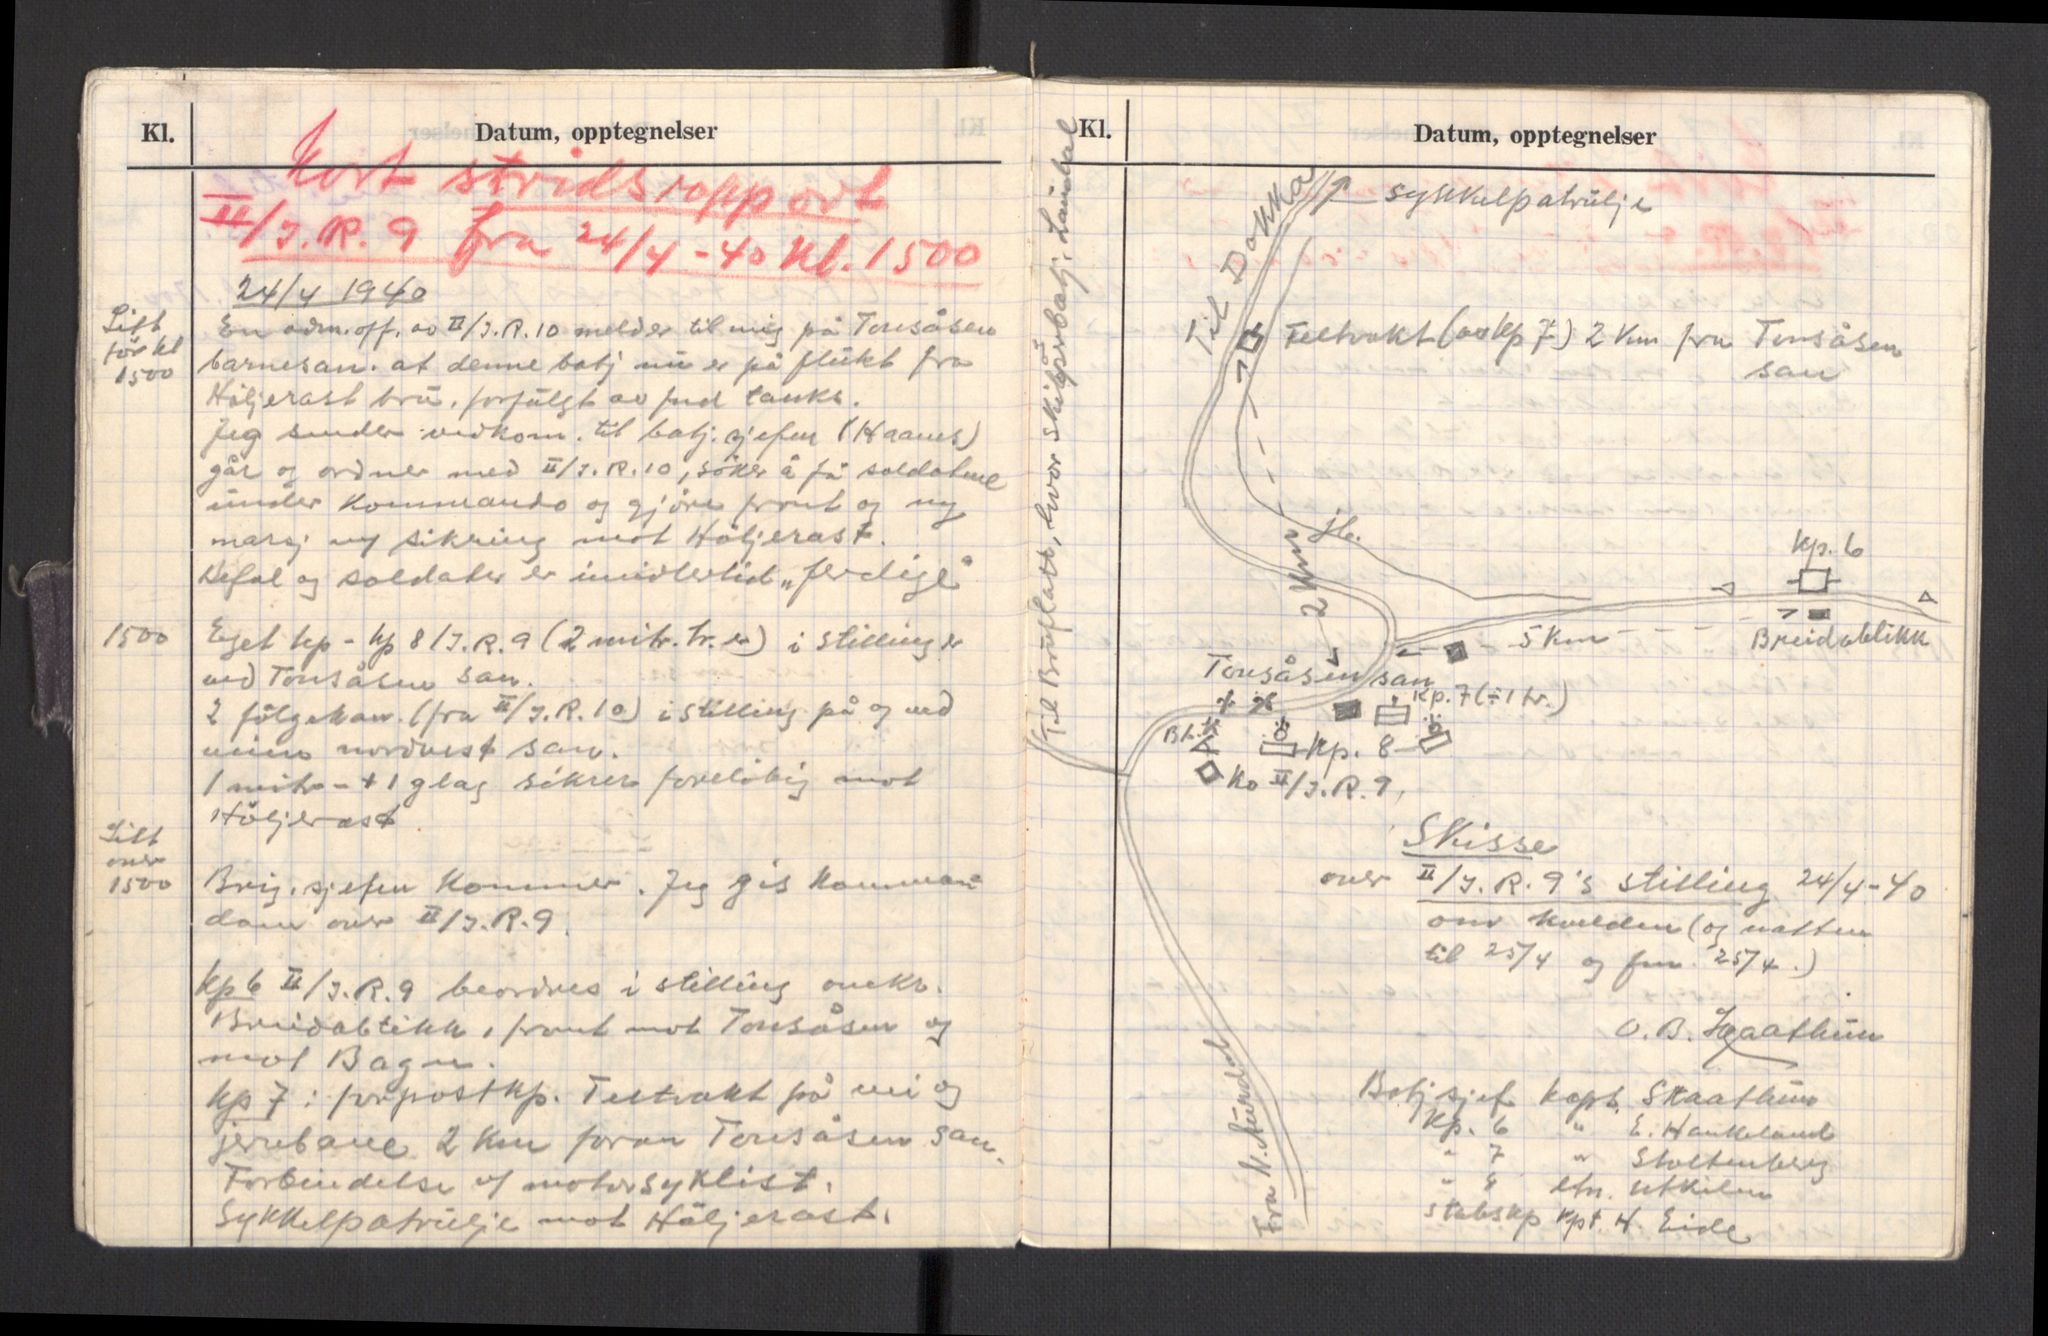 Kl. Datum, opptegnelser
Kort stridsrapport
II/J.R. 9 fra 24/4-40 Kl. 1500
24/4 1940
Litt før kl 1500
En adm.off. av II/J.R. 10 melder til mig på Tonsåsen
barnesan. at denne batj nu er på flukt fra
Høljerast bru, forfulgt av fiendl tanks.
Jeg sender vedkom. til batj. sjefen (Haanes)
går og ordner med II/J.R. 10, søker å få soldatene
under Kommando og gjøre front og ny
marsj sikring mot Høljerast.
Befal og soldater er imidlertid „ferdige"
1500
Eget kp - kp 8/J.R. 9 (2 mitr. tr.er) i stillinger
ved Tonsåsen san.
2 følgekan. (fra II/J.R. 10) i stilling på og ved
veien nordvest san.
1 mitr - + 1 glag sikrer foreløbig mot
Høljerast
Litt over 1500
Brig. sjefen kommer. Jeg gis Komman-
doen over II/J.R. 9.
Kp 6 II/J.R. 9 beordres i stilling
Breidablikk, front mot Tonsåsen og
mot Bagn.
Kp 7: forpostkp. Feltvakt på vei og
jernbane 2 Km foran Tonsåsen san.
Forbindelse motorsyklist.
Sykkelpatrulje mot Høljerast.
Kl. Datum, opptegnelser
Til Bruflatt, hvor skiløperbatj. Landtal
Til Dokka
sykkelpatrulje
Feltvakt (av kp 7) 2 Km fra Tonsåsen
san
jb.
2 Km
Kp. 6
5 Km
Breidablikk
Tonsåsen san
Kp. 7 (÷ 1 tr.)
Kp. 8
Ko II/J.R. 9,
Skisse
over II/J.R. 9's stilling 24/4-40
om kvelden (og natten
til 25/4 og fm. 25/4.)
O. B. Skaathun
Fra N. Aurdal
Batj sjef kapt. Skaathun
Kp. 6 " E. Haukeland
" 7 " Stoltenberg
" 8 ltn. Utkilen
Stabskp kpt. H. Eide